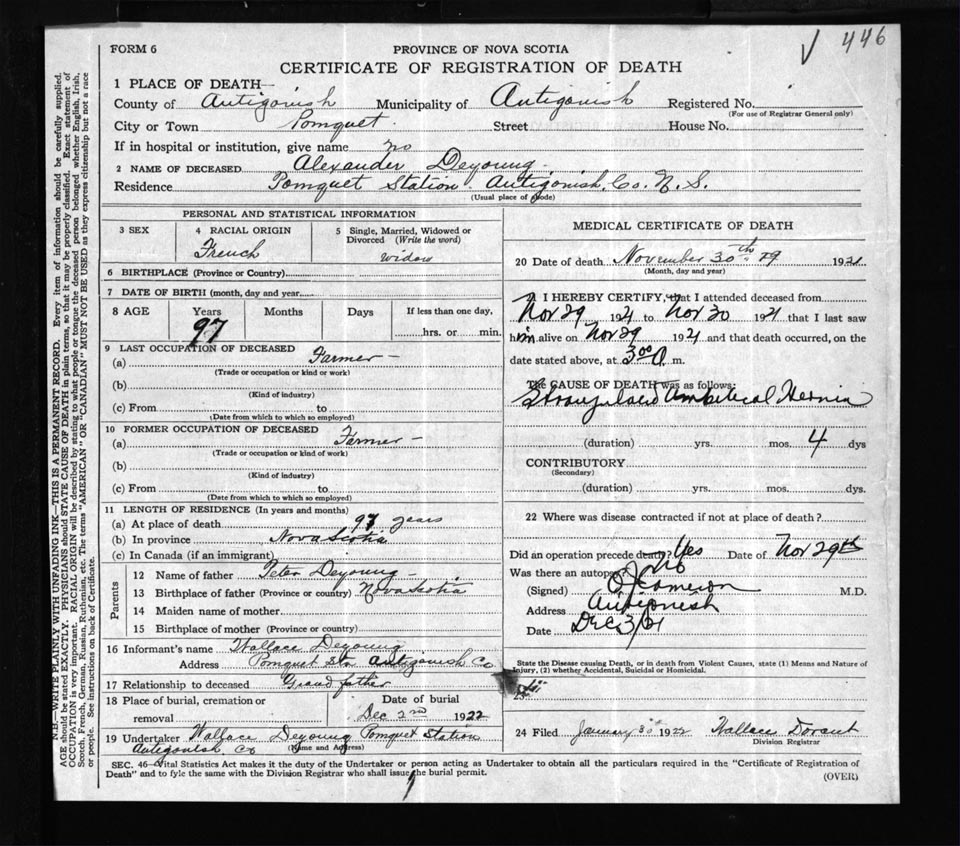 √ 446
FORM 6
PROVINCE OF NOVA SCOTIA
CERTIFICATE OF REGISTRATION OF DEATH
1 PLACE OF DEATH—
County of Antigonish Municipality of Antigonish Registered No.
(For use of Registrar General only)
City or Town Pomquet Street House No.
If in hospital or institution, give name no
2 NAME OF DECEASED Alexander Deyoung
Residence Pomquet Station. Antigonish, Co. N. S.
(Usual place of abode)
PERSONAL AND STATISTICAL INFORMATION
3 SEX 4 RACIAL ORIGIN 5 Single, Married, Widowed or Divorced (Write the word)
French widow
6 BIRTHPLACE (Province or Country)
7 DATE OF BIRTH (month, day and year
8 AGE Years Months Days If less than one day,
97 hrs. or min.
9 LAST OCCUPATION OF DECEASED
(a) Farmer —
(Trade or occupation or kind or work)
(b)
(Kind of industry)
(c) From to
(Date from which to which so employed)
10 FORMER OCCUPATION OF DECEASED
(a) Farmer —
(Trade or occupation or kind or work)
(b)
(Kind of industry)
(c) From to
(Date from which to which so employed)
11 LENGTH OF RESIDENCE (In years and months)
(a) At place of death 97 years
(b) In province Nova Scotia
(c) In Canada (if an immigrant)
Parents
12 Name of father Peter Deyoung
13 Birthplace of father (Province or country) Nova Scotia
14 Maiden name of mother
15 Birthplace of mother (Province or country)
16 Informant's name Wallace Deyoung
Address Pomquet Sta Antigonish Co
17 Relationship to deceased Grand father
18 Place of burial, cremation or removal Date of burial
Dec 2nd 1922
19 Undertaker Wallace Deyoung Pomquet Station
Antigonish Co (Name and Address)
MEDICAL CERTIFICATE OF DEATH
20 Date of death November 30th 19 1921
(Month, day and year)
I HEREBY CERTIFY, that I attended deceased from
Nov 29 1921 to Nov 30 1921 that I last saw
him alive on Nov 29 1921 and that death occurred, on the
date stated above, at 3 00 a m.
The CAUSE OF DEATH was as follows:
Strangulated Umbilical Hernia
(duration) yrs. mos. 4 dys
CONTRIBUTORY
(Secondary)
(duration) yrs. mos. dys.
22 Where was disease contracted if not at place of death?
Did an operation precede death? Yes Date of Nov 29th
Was there an autopsy No
(Signed) Cameron M.D.
Address Antigonish
Date Dec 3/21
State the Disease causing Death, or in death from Violent Causes, state (1) Means and Nature of
Injury, (2) whether Accidental, Suicidal or Homicidal.
24 Filed January 30 1922 Wallace Dorant
Division Registrar
SEC. 46—Vital Statistics Act makes it the duty of the Undertaker or person acting as Undertaker to obtain all the particulars required in the "Certificate of Registration of
Death" and to fyle the same with the Division Registrar who shall issue the burial permit.
(OVER)
N.B.—WRITE PLAINLY WITH UNFADING INK—THIS IS A PERMANENT RECORD. Every item of information should be carefully supplied.
AGE should be stated EXACTLY. PHYSICIANS should STATE CAUSE OF DEATH in plain terms, so that it may be properly classified. Exact statement of
OCCUPATION is very important. RACIAL ORIGIN will be described by stating to what people or tongue the deceased person belonged whether English, Irish,
Scotch, French, German, Russian, Ruthenian, etc. The terms "AMERICAN" OR "CANADIAN" MUST NOT BE USED as they express citizenship but not a race
or people. See instructions on back of Certificate.